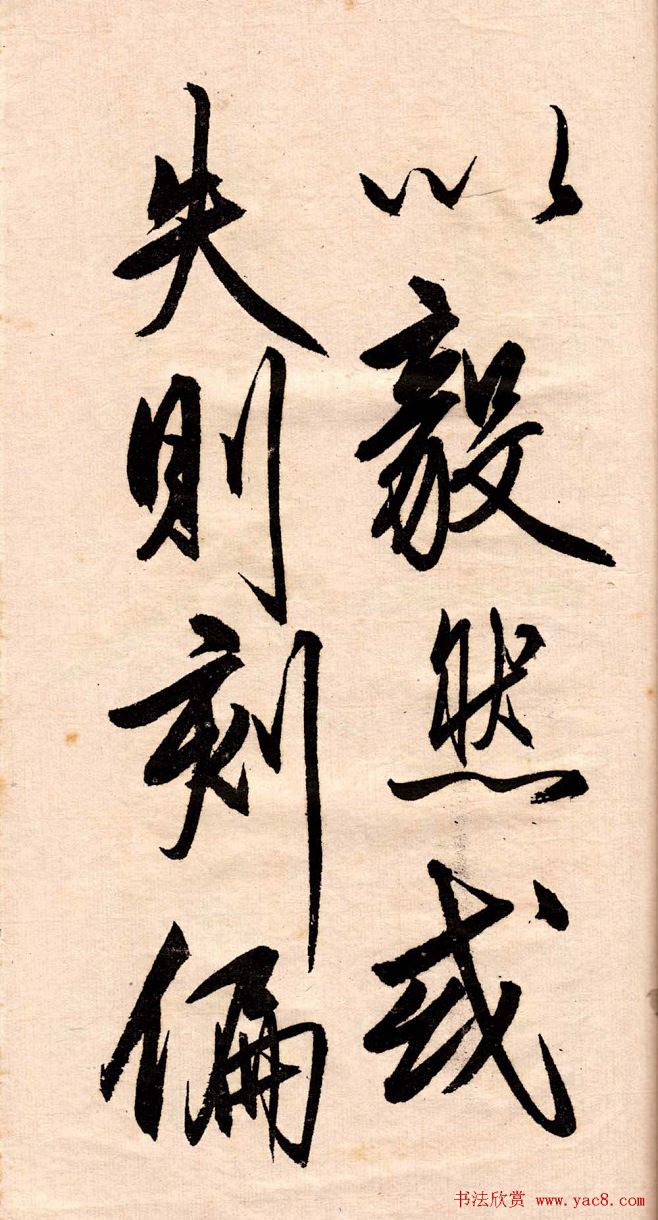 以毅然或
失则刻偏
书法欣赏 www.yac8.com